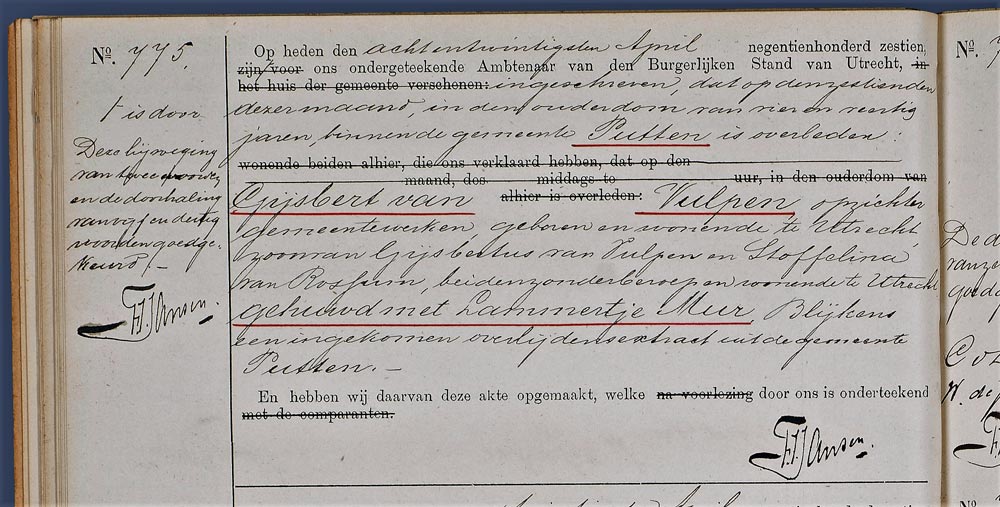 No. 775.
† is door
Deze bijvoeging
van twee woorden
en de doorhaling
van vijf en dertig
woorden goedge-
keurd.-
F.J. Jansen.
Op heden den achtentwintigsten April negentienhonderd zestien,
zijn voor ons ondergeteekende Ambtenaar van den Burgerlijken Stand van Utrecht, in
het huis der gemeente verschenen: ingeschreven, dat op den zestienden
dezer maand, in den ouderdom van vier en veertig
jaren, binnen de gemeente Putten is overleden:
wonende beiden alhier, die ons verklaard hebben, dat op den
maand, des middags te uur, in den ouderdom van
Gijsbert van alhier is overleden: Vulpen, opzichter
gemeentewerken, geboren en wonende te Utrecht,
zoon van Gijsbertus van Vulpen en Stoffelina
van Rossum, beiden zonder beroep en wonende te Utrecht
gehuwd met Lammertje Mur. Blijkens
een ingekomen overlijdensextract uit de gemeente
Putten.-
En hebben wij daarvan deze akte opgemaakt, welke na voorlezing door ons is onderteekend
met de comparanten.
F.J. Jansen.
No.
De d
van ze
goed
W. de
No.